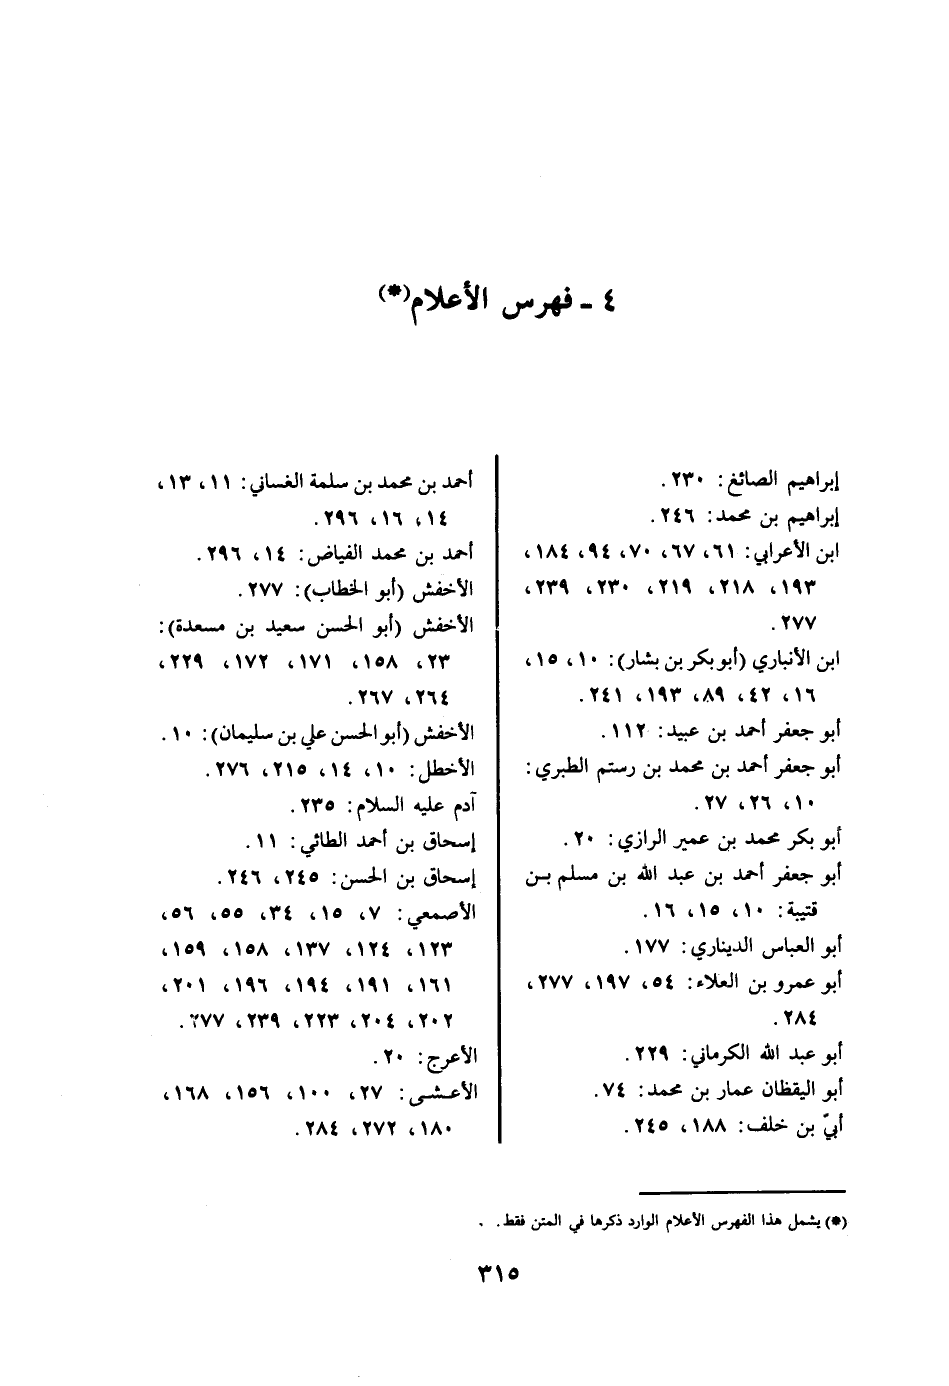 ٤ ـ فهرس الأعلام(*)
إبراهيم الصائغ: ٢٣٠.
إبراهيم بن محمد: ٢٤٦.
ابن الأعرابي: ٦١، ٦٧، ٧٠، ٩٤، ١٨٤،
١٩٣، ٢١٨، ٢١٩، ٢٣٠، ٢٣٩،
٢٧٧.
ابن الأنباري (أبو بكر بن بشار): ١٠، ١٥،
١٦، ٤٢، ٨٩، ١٩٣، ٢٤١.
أبو جعفر أحمد بن عبيد: ١١٢.
أبو جعفر أحمد بن محمد بن رستم الطبري:
١٠، ٢٦، ٢٧.
أبو بكر محمد بن عمير الرازي: ٢٠.
أبو جعفر أحمد بن عبد الله بن مسلم بن
قتيبة: ١٠، ١٥، ١٦.
أبو العباس الديناري: ١٧٧.
أبو عمرو بن العلاء: ٥٤، ١٩٧، ٢٧٧،
٢٨٤.
أبو عبد الله الكرماني: ٢٢٩.
أبو اليقظان عمار بن محمد: ٧٤.
أبيّ بن خلف: ١٨٨، ٢٤٥.
أحمد بن محمد بن سلمة الغساني: ١١، ١٣،
١٤، ١٦، ٢٩٦.
أحمد بن محمد الفياض: ١٤، ٢٩٦.
الأخفش (أبو الخطاب): ٢٧٧.
الأخفش (أبو الحسن سعيد بن مسعدة):
٢٣، ١٥٨، ١٧١، ١٧٢، ٢٢٩،
٢٦٤، ٢٦٧.
الأخفش (أبو الحسن علي بن سليمان): ١٠.
الأخطل: ١٠، ١٤، ٢١٥، ٢٧٦.
آدم عليه السلام: ٢٣٥.
إسحاق بن أحمد الطائي: ١١.
إسحاق بن الحسن: ٢٤٥، ٢٤٦.
الأصمعي: ٧، ١٥، ٣٤، ٥٥، ٥٦،
١٢٣، ١٢٤، ١٣٧، ١٥٨، ١٥٩،
١٦١، ١٩١، ١٩٤، ١٩٦، ٢٠١،
٢٠٢، ٢٠٤، ٢٢٣، ٢٣٩، ٢٧٧.
الأعرج: ٢٠.
الأعشى: ٢٧، ١٠٠، ١٥٦، ١٦٨،
١٨٠، ٢٧٢، ٢٨٤.
(*) يشمل هذا الفهرس الأعلام الوارد ذكرها في المتن فقط.
٣١٥